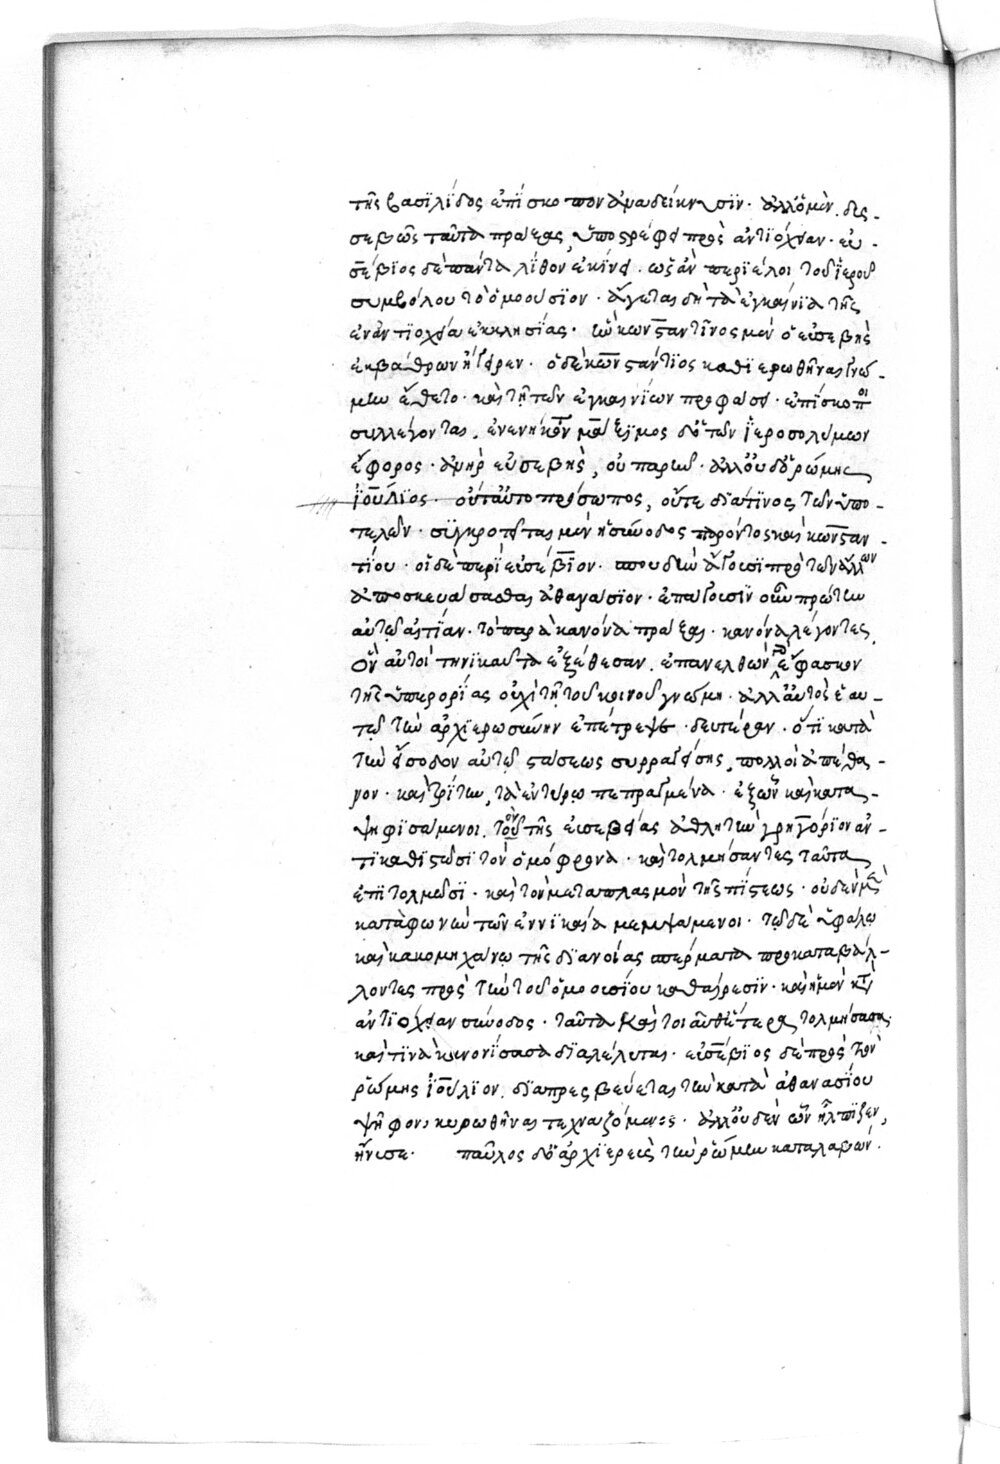 τῆς βασϊλΐδος ἐπΐσκοπον ἀναδείκνυσϊν· ἀλλ᾽ ὁ μὲν δυς-
σεβῶς ταῦτα πράξας, ὑποστρέφει πρὸς ἀντϊόχειαν· εὐ-
σέβϊος δὲ πάντα λΐθον ἐκίνει· ὡς ἂν περϊέλοι τοῦ ϊεροῦ
συμβόλου τὸ ὁμοούσϊον· ἄγεται δὴ τὰ ἐγκαίνϊα τῆς
ἐν ἀντϊοχεία ἐκκλησίας· ὧ κωνσταντῖνος μὲν ὁ εὐσεβὴς
ἐκ βάθρων ἤγειρεν· ὁ δὲ κωνστάντϊος καθϊερωθῆναι γνώ-
μην ἔθετο· καὶ τῆ τῶν ἐγκαινίων προφάσει· ἐπίσκοποι
συλλέγονται, ἐνενήκοντα μάξϊμος δὲ ὁ τῶν ϊεροσολύμων
ἔφορος· ἀνὴρ εὐσεβὴς, οὐ παρῆν· ἀλλ᾽ οὐδ᾽ ὁ ῥώμης
ϊούλϊος· οὔτ᾽ αὐτοπρόσωπος, οὔτε διά τϊνος τῶν ὑπο-
τελῶν· συγκροτεῖται μὲν ἡ σύνοδος παρόντος καὶ κωνσταν-
τίου· οἱ δὲ περὶ εὐσέβϊον· σπουδὴν ἄγουσϊ πρὸ τῶν ἄλλων
ἀποσκευάσασθαι ἀθανάσϊον· ἐπάγουσϊν οὖν πρώτην
αὐτῶ αἰτΐαν· τὸ παρὰ κανόνα πράξαι· κανόνα λέγοντες,
ὃν αὐτοὶ τηνϊκαῦτα ἐξέθεσαν. ἐπανελθὼν γὰρ ἔφασκον
τῆς ὑπερορΐας οὐχὶ τῆ τοῦ κοινοῦ γνώμη· ἀλλ᾽ αὐτὸς ἑαυ-
τῶ τὴν ἀρχϊερωσύνην ἐπέτρεψε· δευτέραν· ὅτϊ κατὰ
τὴν εἴσοδον αὐτοῦ στάσεως συρραγείσης, πολλοὶ ἀπέθα-
νον· καὶ τρίτην, τὰ ἐν τύρω πεπραγμένα· ἐξ ὧν καὶ κατα-
ψηφισάμενοι τοῦτον τῆς εὐσεβείας ἀθλητὴν γρηγόρϊον ἀν-
τϊκαθϊστῶσϊ τὸν ὁμόφρονα· καὶ τολμήσαντες ταῦτα
ἐπϊτολμῶσϊ· καὶ τὸν μεταπλασμὸν τῆς πΐστεως· οὐδὲν μὲν
κατὰ φωνὴν τῶν ἐν νϊκαία μεμψάμενοι· τῶ δὲ ὑφάλω
καὶ κακομηχάνω τῆς δϊανοίας σπέρματα προκαταβάλ-
λοντες πρὸς τὴν τοῦ ὁμοουσίου καθαίρεσϊν· καὶ ἡ μὲν κατὰ
ἀντϊόχειαν σύνοδος· ταῦτα καὶ τοιαῦθ᾽ ἕτερα τολμήσασα
καὶ τϊνὰ κανονΐσασα δϊαλέλυται· εὐσέβϊος δὲ πρὸς τὸν
ῥώμης ϊούλϊον, δϊαπρεσβεύεται τὴν κατὰ ἀθανασΐου
ψῆφον, κυρωθῆναι τεχναζόμενος· ἀλλ᾽ οὐδὲν ὧν ἤλπϊζεν,
ἤνυσε· παῦλος δὲ ὁ ἀρχϊερεὺς τὴν ῥώμην καταλαβὼν·